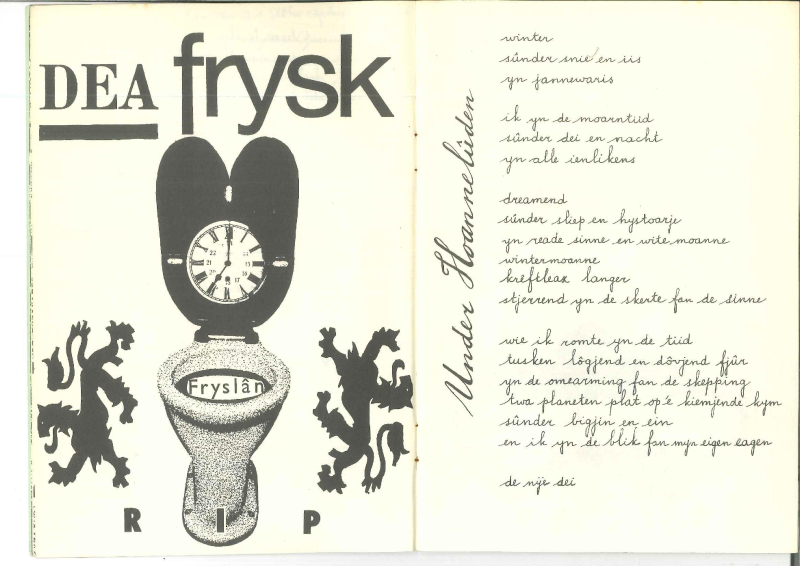 DEA frysk
Fryslân
R I P
Under Hoannelûden
winter
sûnder snie en iis
yn jannewaris
ik yn de moarntiid
sûnder dei en nacht
yn alle ienlikens
dreamend
sûnder sliep en hystoarje
yn reade sinne en wite moanne
wintermoanne
krêftleaz langer
stjerrend yn de skerte fan de sinne
wie ik romte yn de tiid
tusken lôgjend en dôvjend fjûr
yn de omearming fan de skepping
twa planeten plat op'e kiemjende kym
sûnder bigjin en ein
en ik yn de blik fan myn eigen eagen
de nije dei